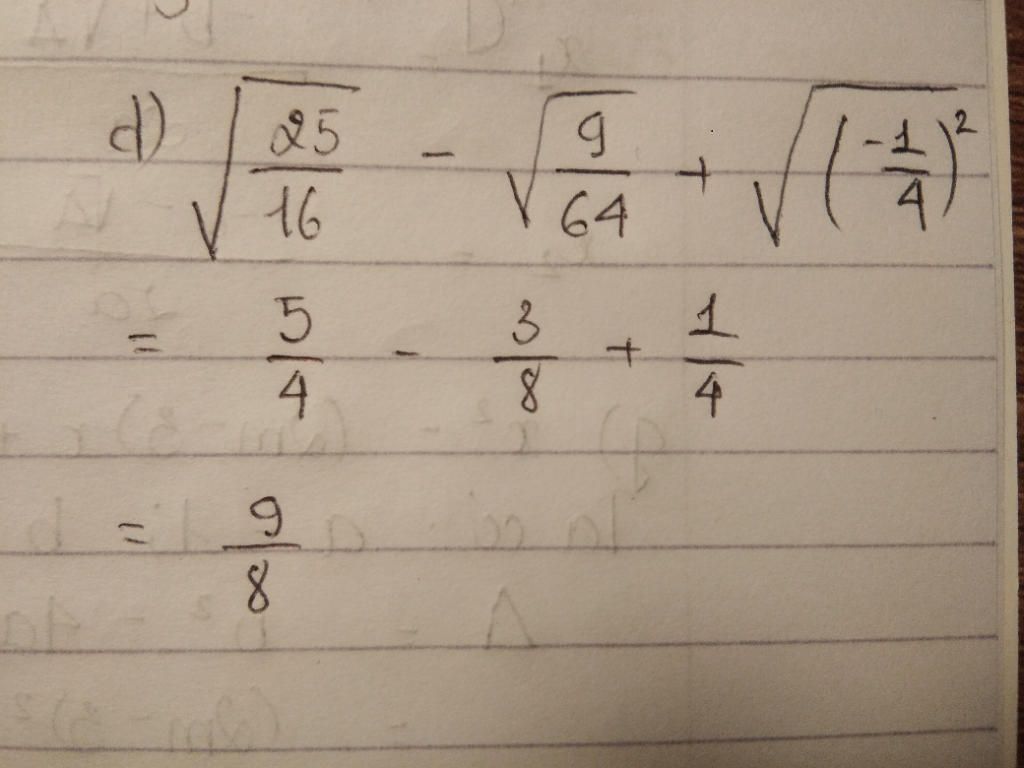 d) √(25/16) - √(9/64) + √((-1/4)²)
= 5/4 - 3/8 + 1/4
= 9/8